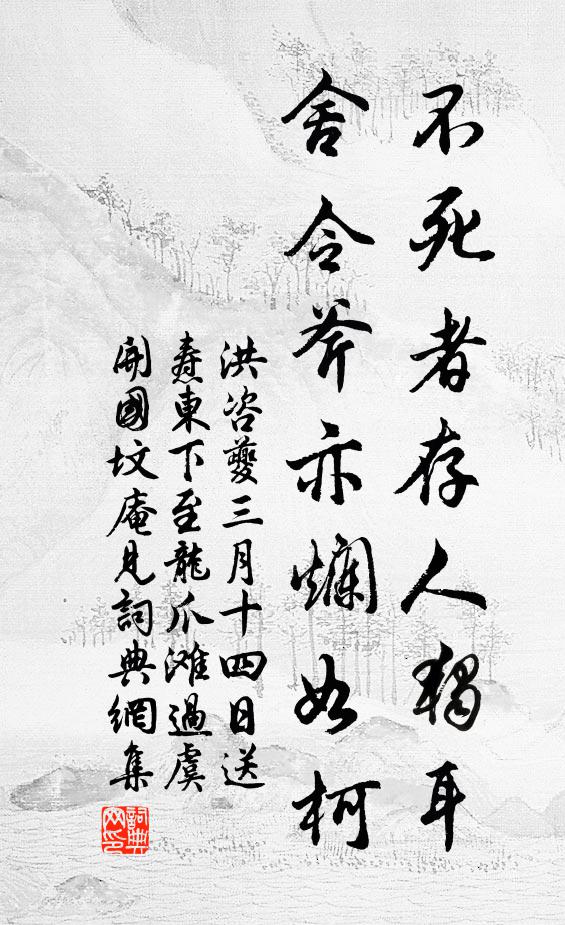 不死者存人獨耳
舍令斧亦爛如柯
洪咨夔三月十四日送
燾東下至龍爪滩過虞
開國坟庵見詞典網集
詞典网印